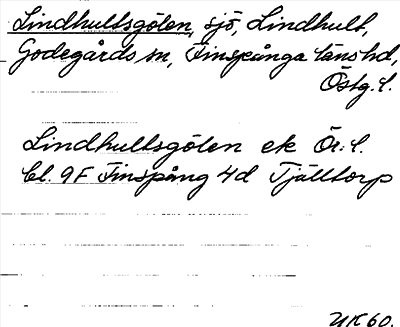 Lindhultsgölen, sjö, Lindhult,
Godegårds sn, Finspånga läns hd,
Östg. l.
Lindhultsgölen ek Ör: l.
bl. 9F Finspång 4d Tjälltorp
UK 60.